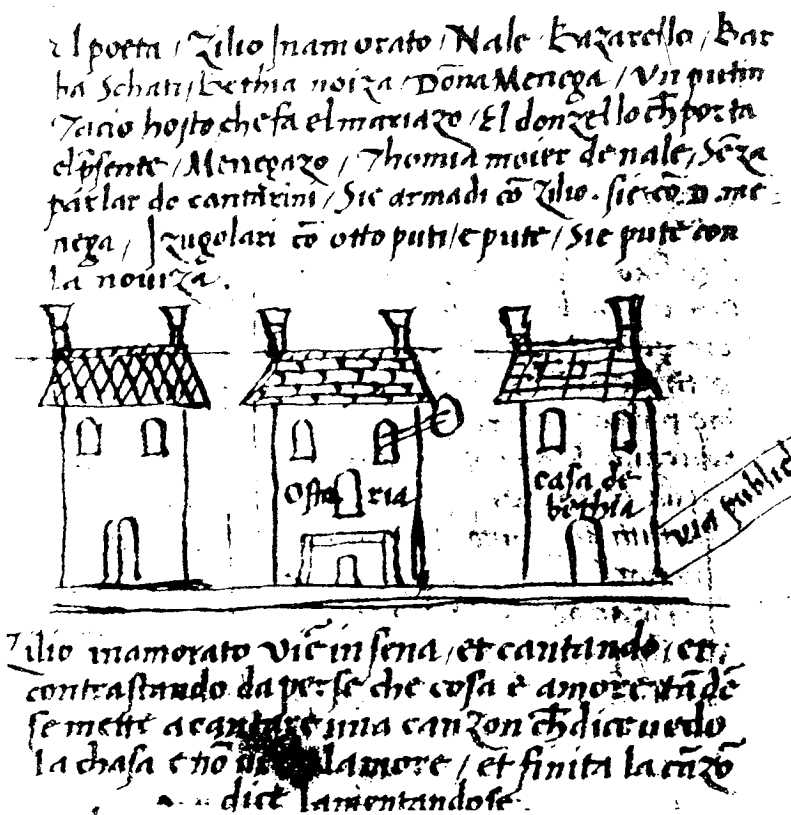 El poeta / Zilio Inamorato / Nale / Bazarello / Bar
ba Schati / Bethia noiza / Dōna Menega / Un putin
Tacio hosto che fa el mariazo / El donzello ch̄ porta
el p̄sente / Menegazo / Thomia moier de nale / Sēza
parlar de cantarini / Sie armadi cō zilio . sie cō . D . me
nega / I zugolari cō otto puti / e pute / Sie pute con
la novizā .
Osta ria
casa de
bethia
via public
Zilio inamorato viē in sena / et cantando / et
contrastando da per se che cosa è amore tādē
se mette a cantare una canzon ch̄ dice vedo
la chasa e nō lamore / et finita la cāzō
dice lamentandose .